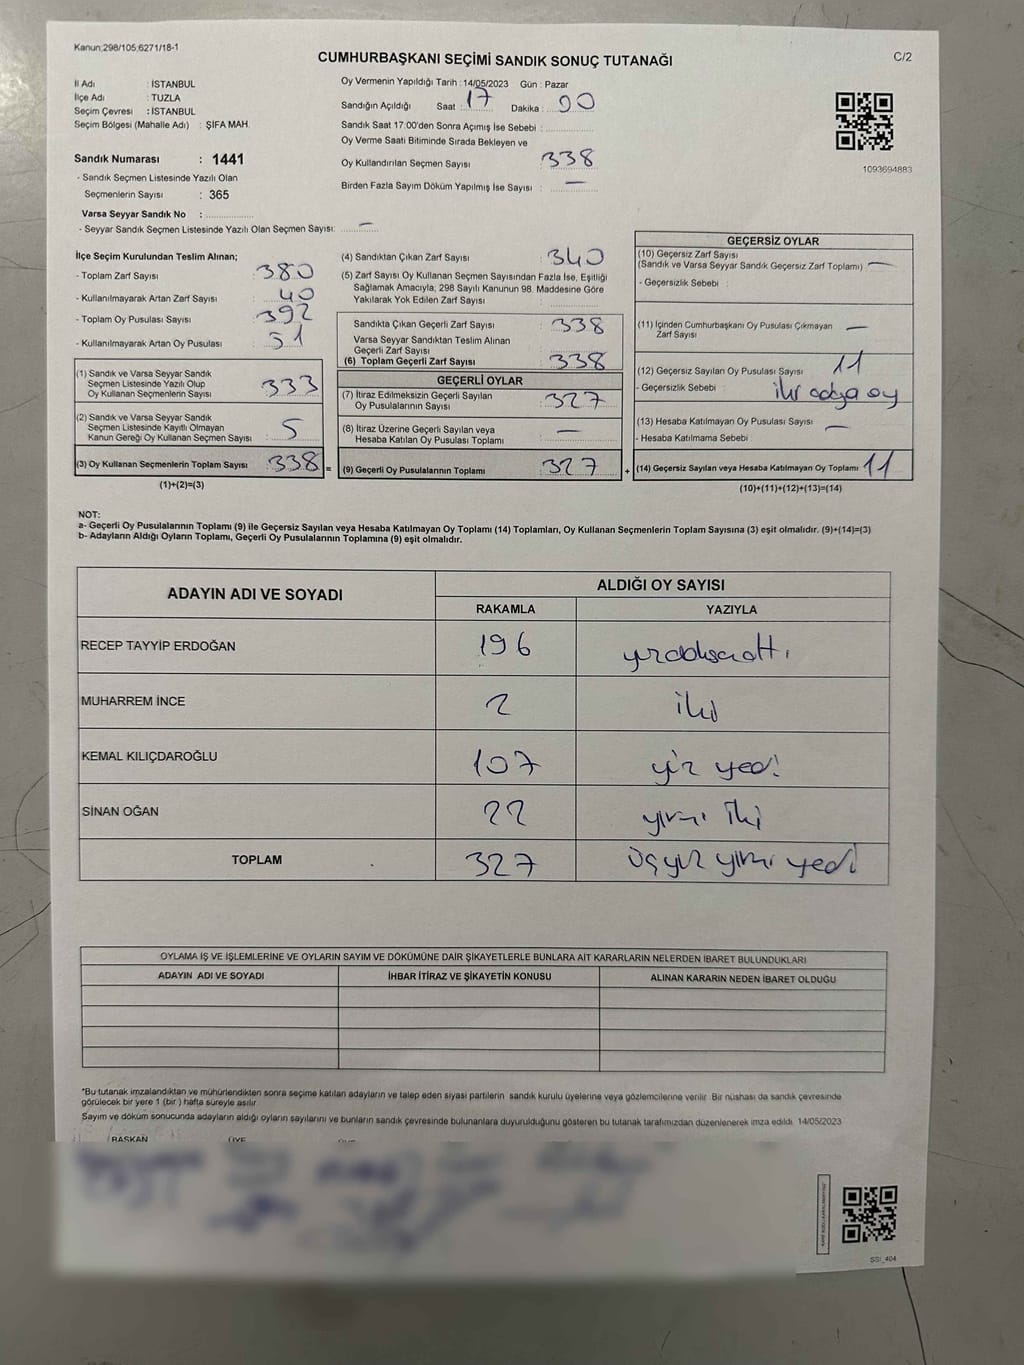 Kanun;298/105;6271/18-1
CUMHURBAŞKANI SEÇİMİ SANDIK SONUÇ TUTANAĞI
C/2
İl Adı : İSTANBUL
İlçe Adı : TUZLA
Seçim Çevresi : İSTANBUL
Seçim Bölgesi (Mahalle Adı) : ŞİFA MAH.
Oy Vermenin Yapıldığı Tarih : 14/05/2023 Gün : Pazar
Sandığın Açıldığı Saat : 17 Dakika : 00
Sandık Saat 17:00'den Sonra Açımış İse Sebebi :
Oy Verme Saati Bitiminde Sırada Bekleyen ve
Oy Kullandırılan Seçmen Sayısı : 338
Birden Fazla Sayım Döküm Yapılmış İse Sayısı : —
1093694883
Sandık Numarası : 1441
- Sandık Seçmen Listesinde Yazılı Olan
Seçmenlerin Sayısı : 365
Varsa Seyyar Sandık No :
- Seyyar Sandık Seçmen Listesinde Yazılı Olan Seçmen Sayısı: —
İlçe Seçim Kurulundan Teslim Alınan;
- Toplam Zarf Sayısı : 380
- Kullanılmayarak Artan Zarf Sayısı : 40
- Toplam Oy Pusulası Sayısı : 392
- Kullanılmayarak Artan Oy Pusulası : 51
(1) Sandık ve Varsa Seyyar Sandık
Seçmen Listesinde Yazılı Olup
Oy Kullanan Seçmenlerin Sayısı : 333
(2) Sandık ve Varsa Seyyar Sandık
Seçmen Listesinde Kayıtlı Olmayan
Kanun Gereği Oy Kullanan Seçmen Sayısı : 5
(3) Oy Kullanan Seçmenlerin Toplam Sayısı : 338 =
(1)+(2)=(3)
(4) Sandıktan Çıkan Zarf Sayısı : 340
(5) Zarf Sayısı Oy Kullanan Seçmen Sayısından Fazla İse, Eşitliği
Sağlamak Amacıyla; 298 Sayılı Kanunun 98. Maddesine Göre
Yakılarak Yok Edilen Zarf Sayısı :
Sandıkta Çıkan Geçerli Zarf Sayısı : 338
Varsa Seyyar Sandıktan Teslim Alınan
Geçerli Zarf Sayısı :
(6) Toplam Geçerli Zarf Sayısı : 338
GEÇERLİ OYLAR
(7) İtiraz Edilmeksizin Geçerli Sayılan
Oy Pusulalarının Sayısı : 327
(8) İtiraz Üzerine Geçerli Sayılan veya
Hesaba Katılan Oy Pusulası Toplamı : —
(9) Geçerli Oy Pusulalarının Toplamı : 327 +
GEÇERSİZ OYLAR
(10) Geçersiz Zarf Sayısı
(Sandık ve Varsa Seyyar Sandık Geçersiz Zarf Toplamı) —
- Geçersizlik Sebebi :
(11) İçinden Cumhurbaşkanı Oy Pusulası Çıkmayan
Zarf Sayısı —
(12) Geçersiz Sayılan Oy Pusulası Sayısı 11
- Geçersizlik Sebebi : oy
(13) Hesaba Katılmayan Oy Pusulası Sayısı —
- Hesaba Katılmama Sebebi
(14) Geçersiz Sayılan veya Hesaba Katılmayan Oy Toplamı 11
(10)+(11)+(12)+(13)=(14)
NOT:
a- Geçerli Oy Pusulalarının Toplamı (9) ile Geçersiz Sayılan veya Hesaba Katılmayan Oy Toplamı (14) Toplamları, Oy Kullanan Seçmenlerin Toplam Sayısına (3) eşit olmalıdır. (9)+(14)=(3)
b- Adayların Aldığı Oyların Toplamı, Geçerli Oy Pusulalarının Toplamına (9) eşit olmalıdır.
ADAYIN ADI VE SOYADI ALDIĞI OY SAYISI
RAKAMLA YAZIYLA
RECEP TAYYİP ERDOĞAN 196
MUHARREM İNCE 2 iki
KEMAL KILIÇDAROĞLU 107 yüz yedi
SİNAN OĞAN 22 yirmi iki
TOPLAM 327 üçyüz yirmi yedi
OYLAMA İŞ VE İŞLEMLERİNE VE OYLARIN SAYIM VE DÖKÜMÜNE DAİR ŞİKAYETLERLE BUNLARA AİT KARARLARIN NELERDEN İBARET BULUNDUKLARI
ADAYIN ADI VE SOYADI İHBAR İTİRAZ VE ŞİKAYETİN KONUSU ALINAN KARARIN NEDEN İBARET OLDUĞU
*Bu tutanak imzalandıktan ve mühürlendikten sonra seçime katılan adayların ve talep eden siyasi partilerin sandık kurulu üyelerine veya gözlemcilerine verilir. Bir nüshası da sandık çevresinde
görülecek bir yere 1 (bir ) hafta süreyle asılır.
Sayım ve döküm sonucunda adayların aldığı oyların sayılarını ve bunların sandık çevresinde bulunanlara duyurulduğunu gösteren bu tutanak tarafımızdan düzenlenerek imza edildi. 14/05/2023
BAŞKAN ÜYE
SSI_404